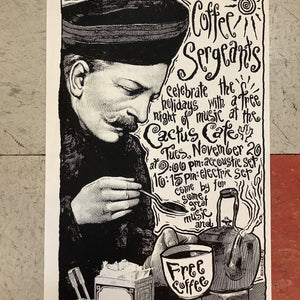 Coffee
Sergeants
celebrate the
holidays with a free
night of music at the
Cactus Cafe
Tues, November 20
at 9:00 pm: accoustic set
10:15pm: electric set
come by for
some great
music and
Free
Coffee